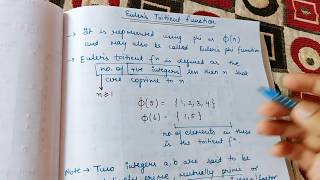 Euler's Totient Function
→ It is represented using phi as ϕ(n)
and may also be called Euler's phi function
→ Euler's totient fⁿ is defined as the
no. of +ve integers less than n that
are coprime to n
n≥1
ϕ(5) = {1,2,3,4}
ϕ(6) = {1,5}
no. of elements in these
is the totient fⁿ.
Note → Two integers a,b are said to be
prime, mutually prime or